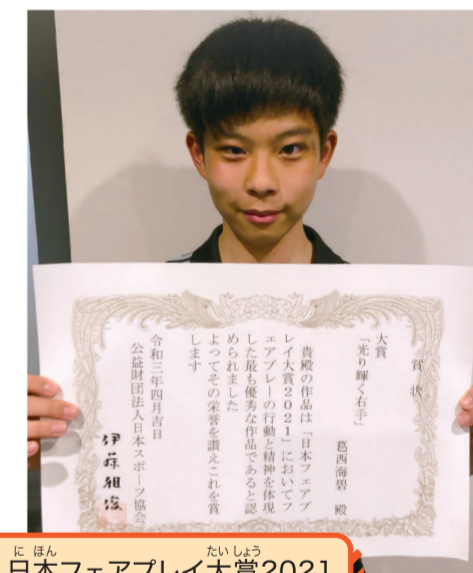 賞状
大賞
「光り輝く右手」
葛西海碧 殿
貴殿の作品は「日本フェアプ
レイ大賞2021」においてフ
ェアプレーの行動と精神を体現
した最も優秀な作品であると認
められました
よってその栄誉を讃えこれを賞
します
令和三年四月吉日
公益財団法人日本スポーツ協会
にほん たいしょう
日本フェアプレイ大賞2021